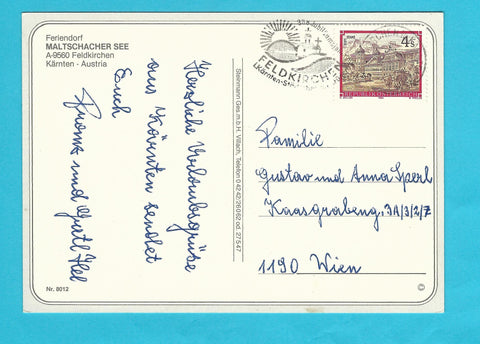 Feriendorf
MALTSCHACHER SEE
A-9560 Feldkirchen
Kärnten - Austria
Herzliche Urlaubsgrüße
aus Kärnten sendet
Euch
Franz und Gretl
Nr. 8012
Steinmann Ges.m.b.H. Villach, Telefon 0 42 42/
FELDKIRCHEN
4 S
REPUBLIK ÖSTERREICH
Familie
Gustav und Anna Sperl
Kaasgrabeng. 3A/3/2/7
1190 Wien
©